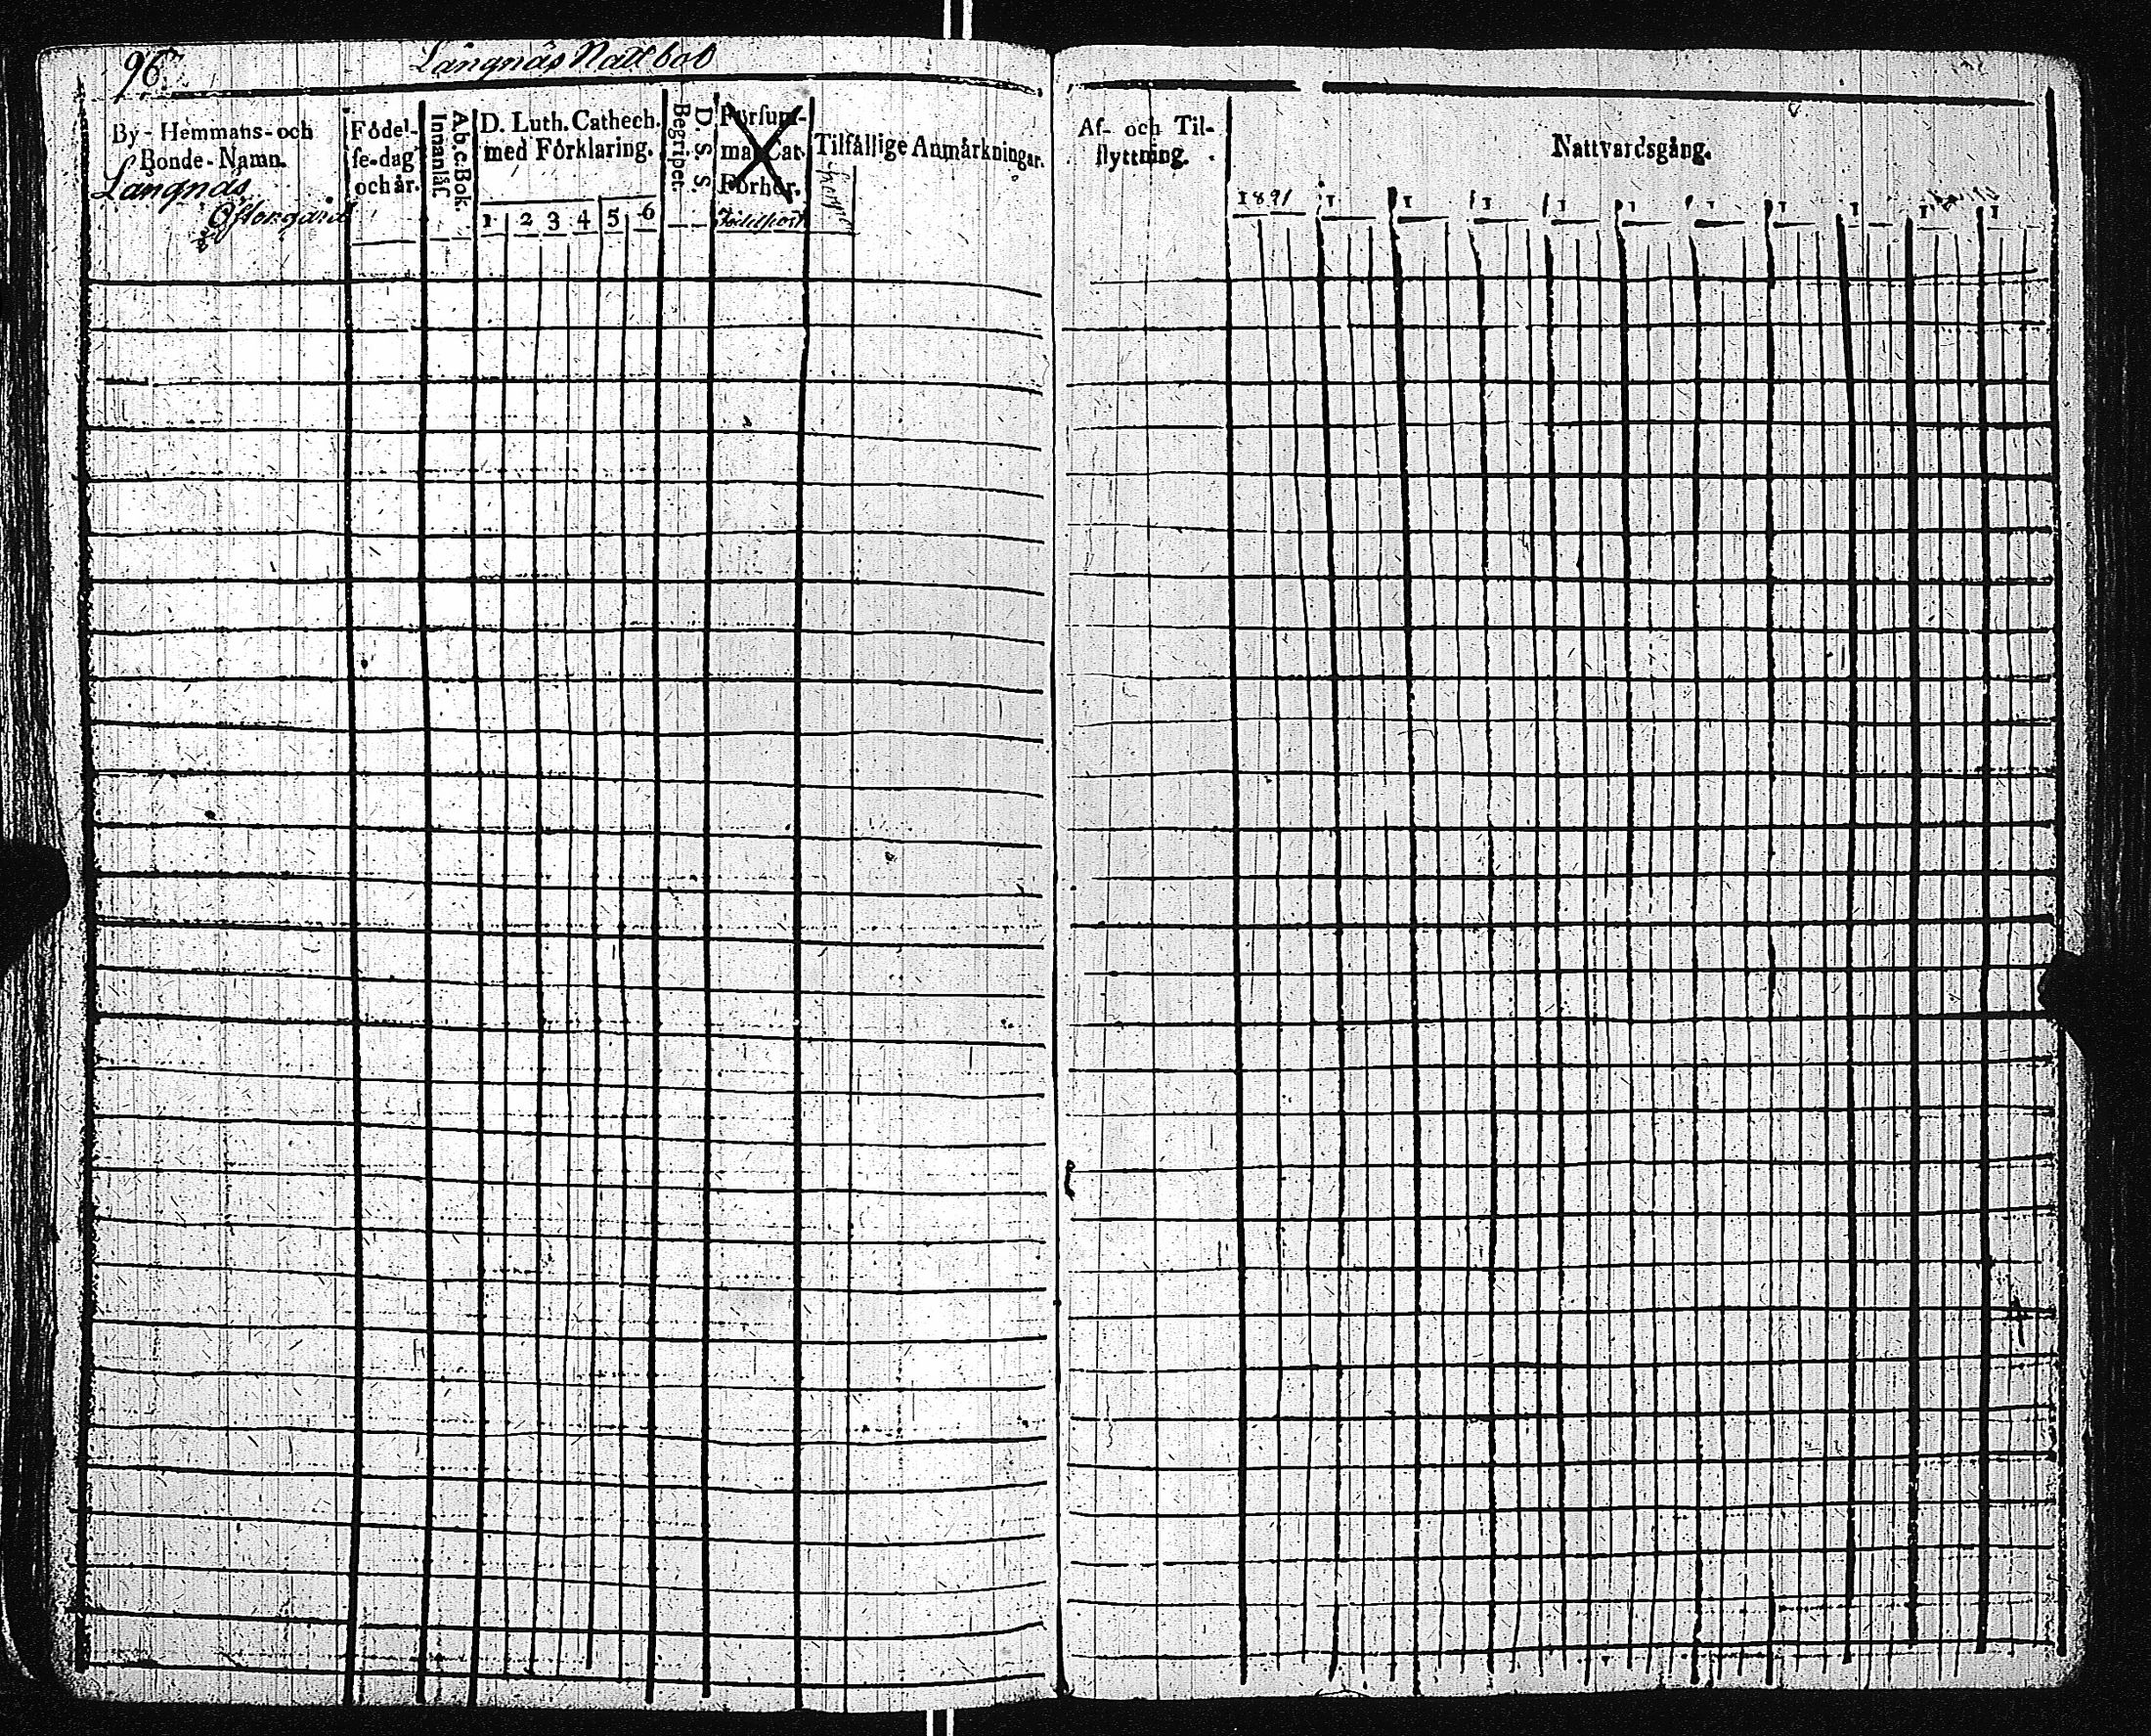 96.
Långnäs Nattbol
By-Hemmans-och
Bonde-Namn.
Långnäs
Östergård
Födel-
se-dag
och år.
A.b.c.Bok.
Innanläs.
D. Luth. Cathech.
med Förklaring.
1 2 3 4 5 6
D. S. S.
Begripet.
Försum-
mat Cat.
Förhör.
Tilfällige Anmärkningar.
Af- och Til-
flyttning.
Nattvardsgång.
1891 1 1 1 1 1 1 1 1 1 1